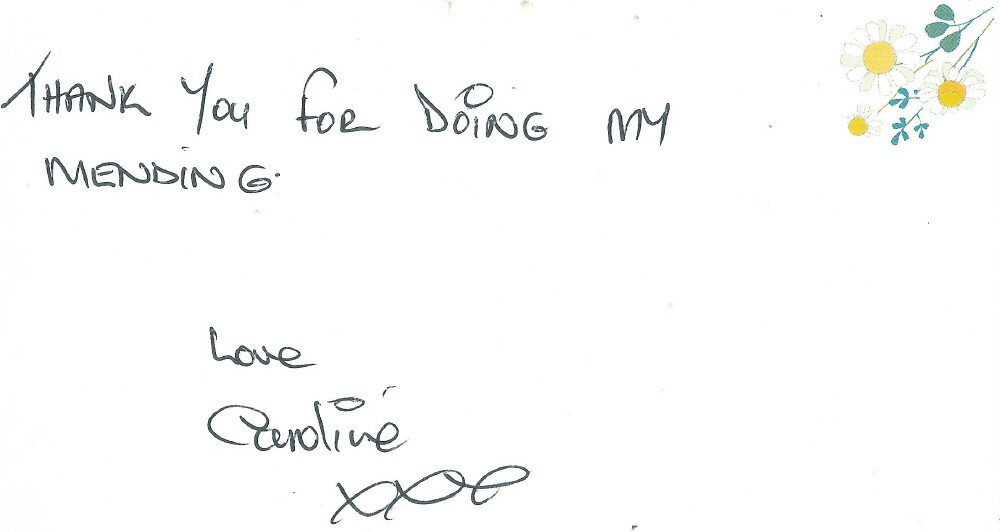 THANK You FOR DOING MY
MENDING.
Love
Caroline
xxx